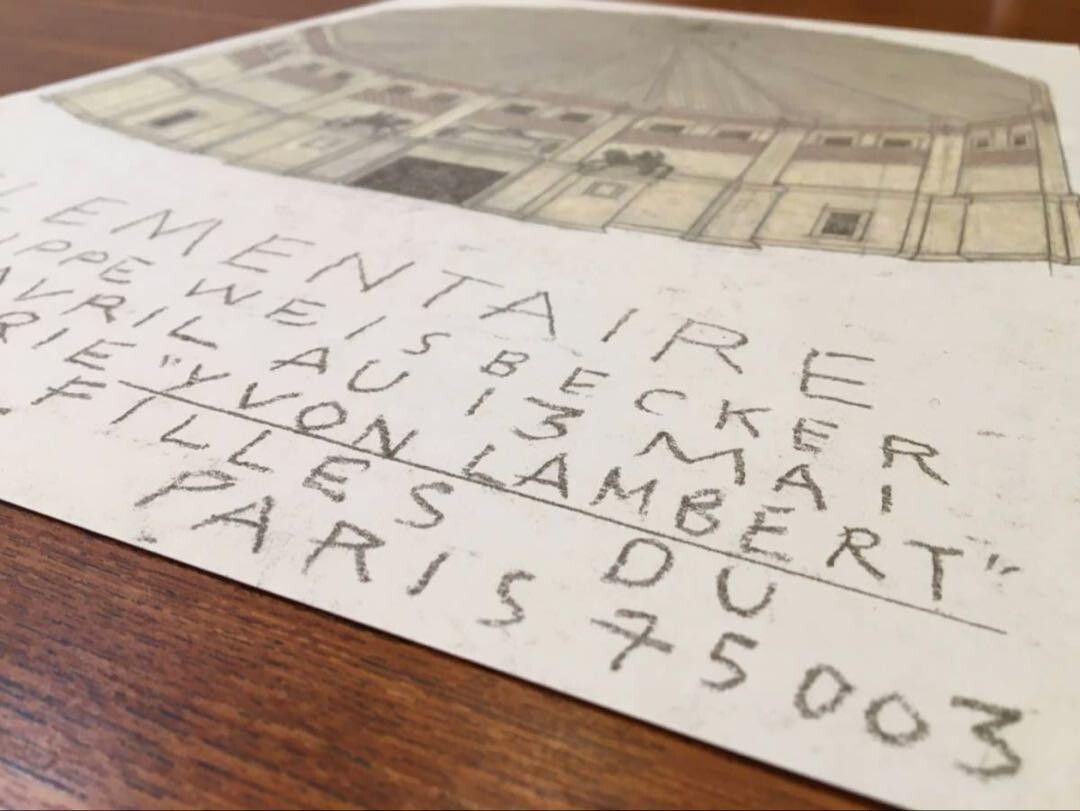 LEMENTAIRE
IPPE WEISBECKER
AVRIL AU 13 MAI
RIE "YVON LAMBERT"
FILLES DU
PARIS 75003